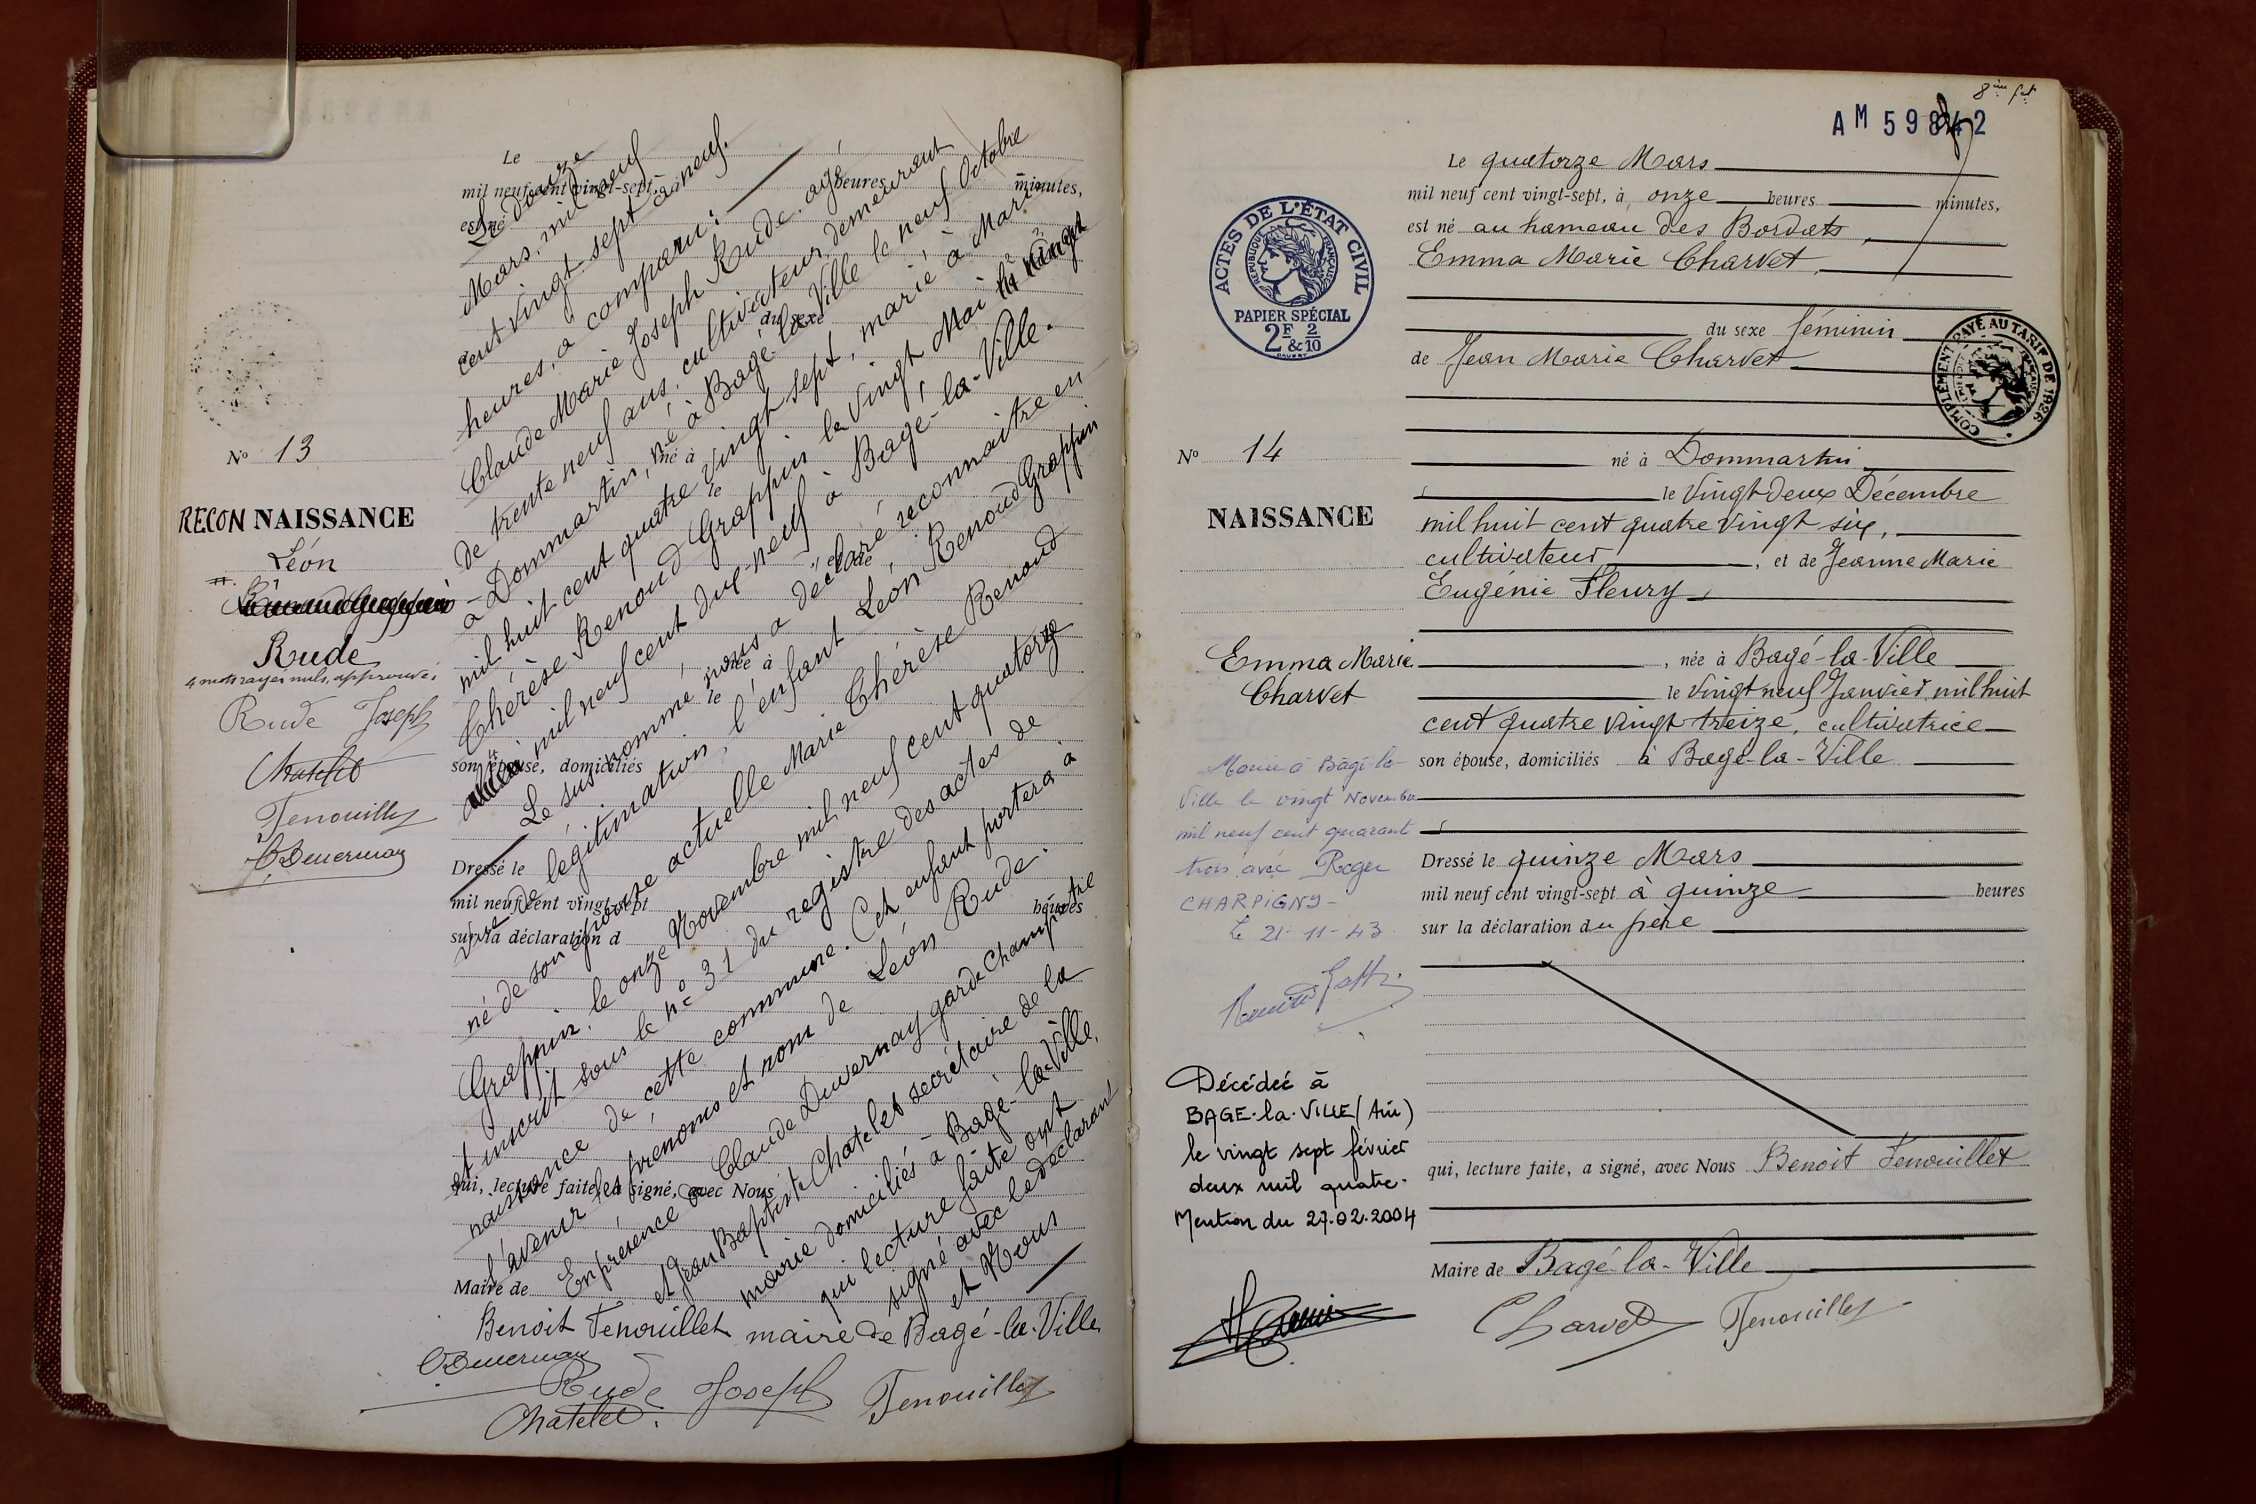 Le
mil neuf cent vingt-sept, heures minutes,
est né
Le douze
Mars, mil neuf
cent vingt sept à neuf
heures, a comparu:
Claude Marie Joseph Rude, agé
de trente neuf ans, cultivateur, demeurant
à Dommartin, né à Bagé-la-Ville le neuf Octobre
mil huit cent quatre vingt sept, marié à Marie
Thérèse Renoud Grappin le vingt Mai
mil neuf cent dix-neuf à Bagé-la-Ville.
Le susnommé nous a déclaré reconnaitre en
vue de légitimation, l'enfant Léon Renoud Grappin
né de son épouse actuelle Marie Thérèse Renoud
Grappin, le onze Novembre mil neuf cent quatorze
et inscrit sous le n° 31 du registre des actes de
naissance de cette commune. Cet enfant portera à
l'avenir les prénoms et nom de Léon Rude.
En présence de Claude Duvernay garde Champêtre
et Jean Baptiste Chatelet secrétaire de la
mairie domiciliés à Bagé-la-Ville,
qui lecture faite ont
signé avec le déclarant
et Nous
Benoit Fenouillet maire de Bagé-la-Ville
du sexe
né à
le
et de
née à
le
son épouse, domiciliés
Dressé le
mil neuf cent vingt-sept heures
sur la déclaration d
qui, lecture faite, a signé, avec Nous
Maire de
C Duvernay
Rude Joseph
Chatelet
Fenouillet
N° 13
RECONNAISSANCE
Léon
Rude
4 mots rayés nuls, approuvés
Rude Joseph
Chatelet
Fenouillet
C Duvernay
8ème fet
AM 59842
ACTES DE L'ÉTAT CIVIL
RÉPUBLIQUE FRANÇAISE
PAPIER SPÉCIAL
2F & 2/10
COMPLÉMENT PAYÉ AU TARIF DE 1926
Le quatorze Mars
mil neuf cent vingt-sept, à onze heures minutes,
est né au hameau des Bordats,
Emma Marie Charvet,
du sexe féminin
de Jean Marie Charvet
né à Dommartin
le vingt deux Décembre
mil huit cent quatre vingt six,
cultivateur, et de Jeanne Marie
Eugénie Fleury
, née à Bagé-la-Ville
le vingt neuf Janvier mil huit
cent quatre vingt treize, cultivatrice
son épouse, domiciliés à Bagé-la-Ville
Dressé le quinze Mars
mil neuf cent vingt-sept à quinze heures
sur la déclaration du père
qui, lecture faite, a signé, avec Nous Benoit Fenouillet
Maire de Bagé-la-Ville
Charvet Fenouillet
N° 14
NAISSANCE
Emma Marie
Charvet
Mariée à Bâgé-la-
Ville le vingt Novembre
mil neuf cent quarante
trois avec Roger
CHARPIGNY-
Le 21-11-43
Décédée à
BAGE-la-VILLE (Ain)
le vingt sept février
deux mil quatre.
Mention du 27.02.2004